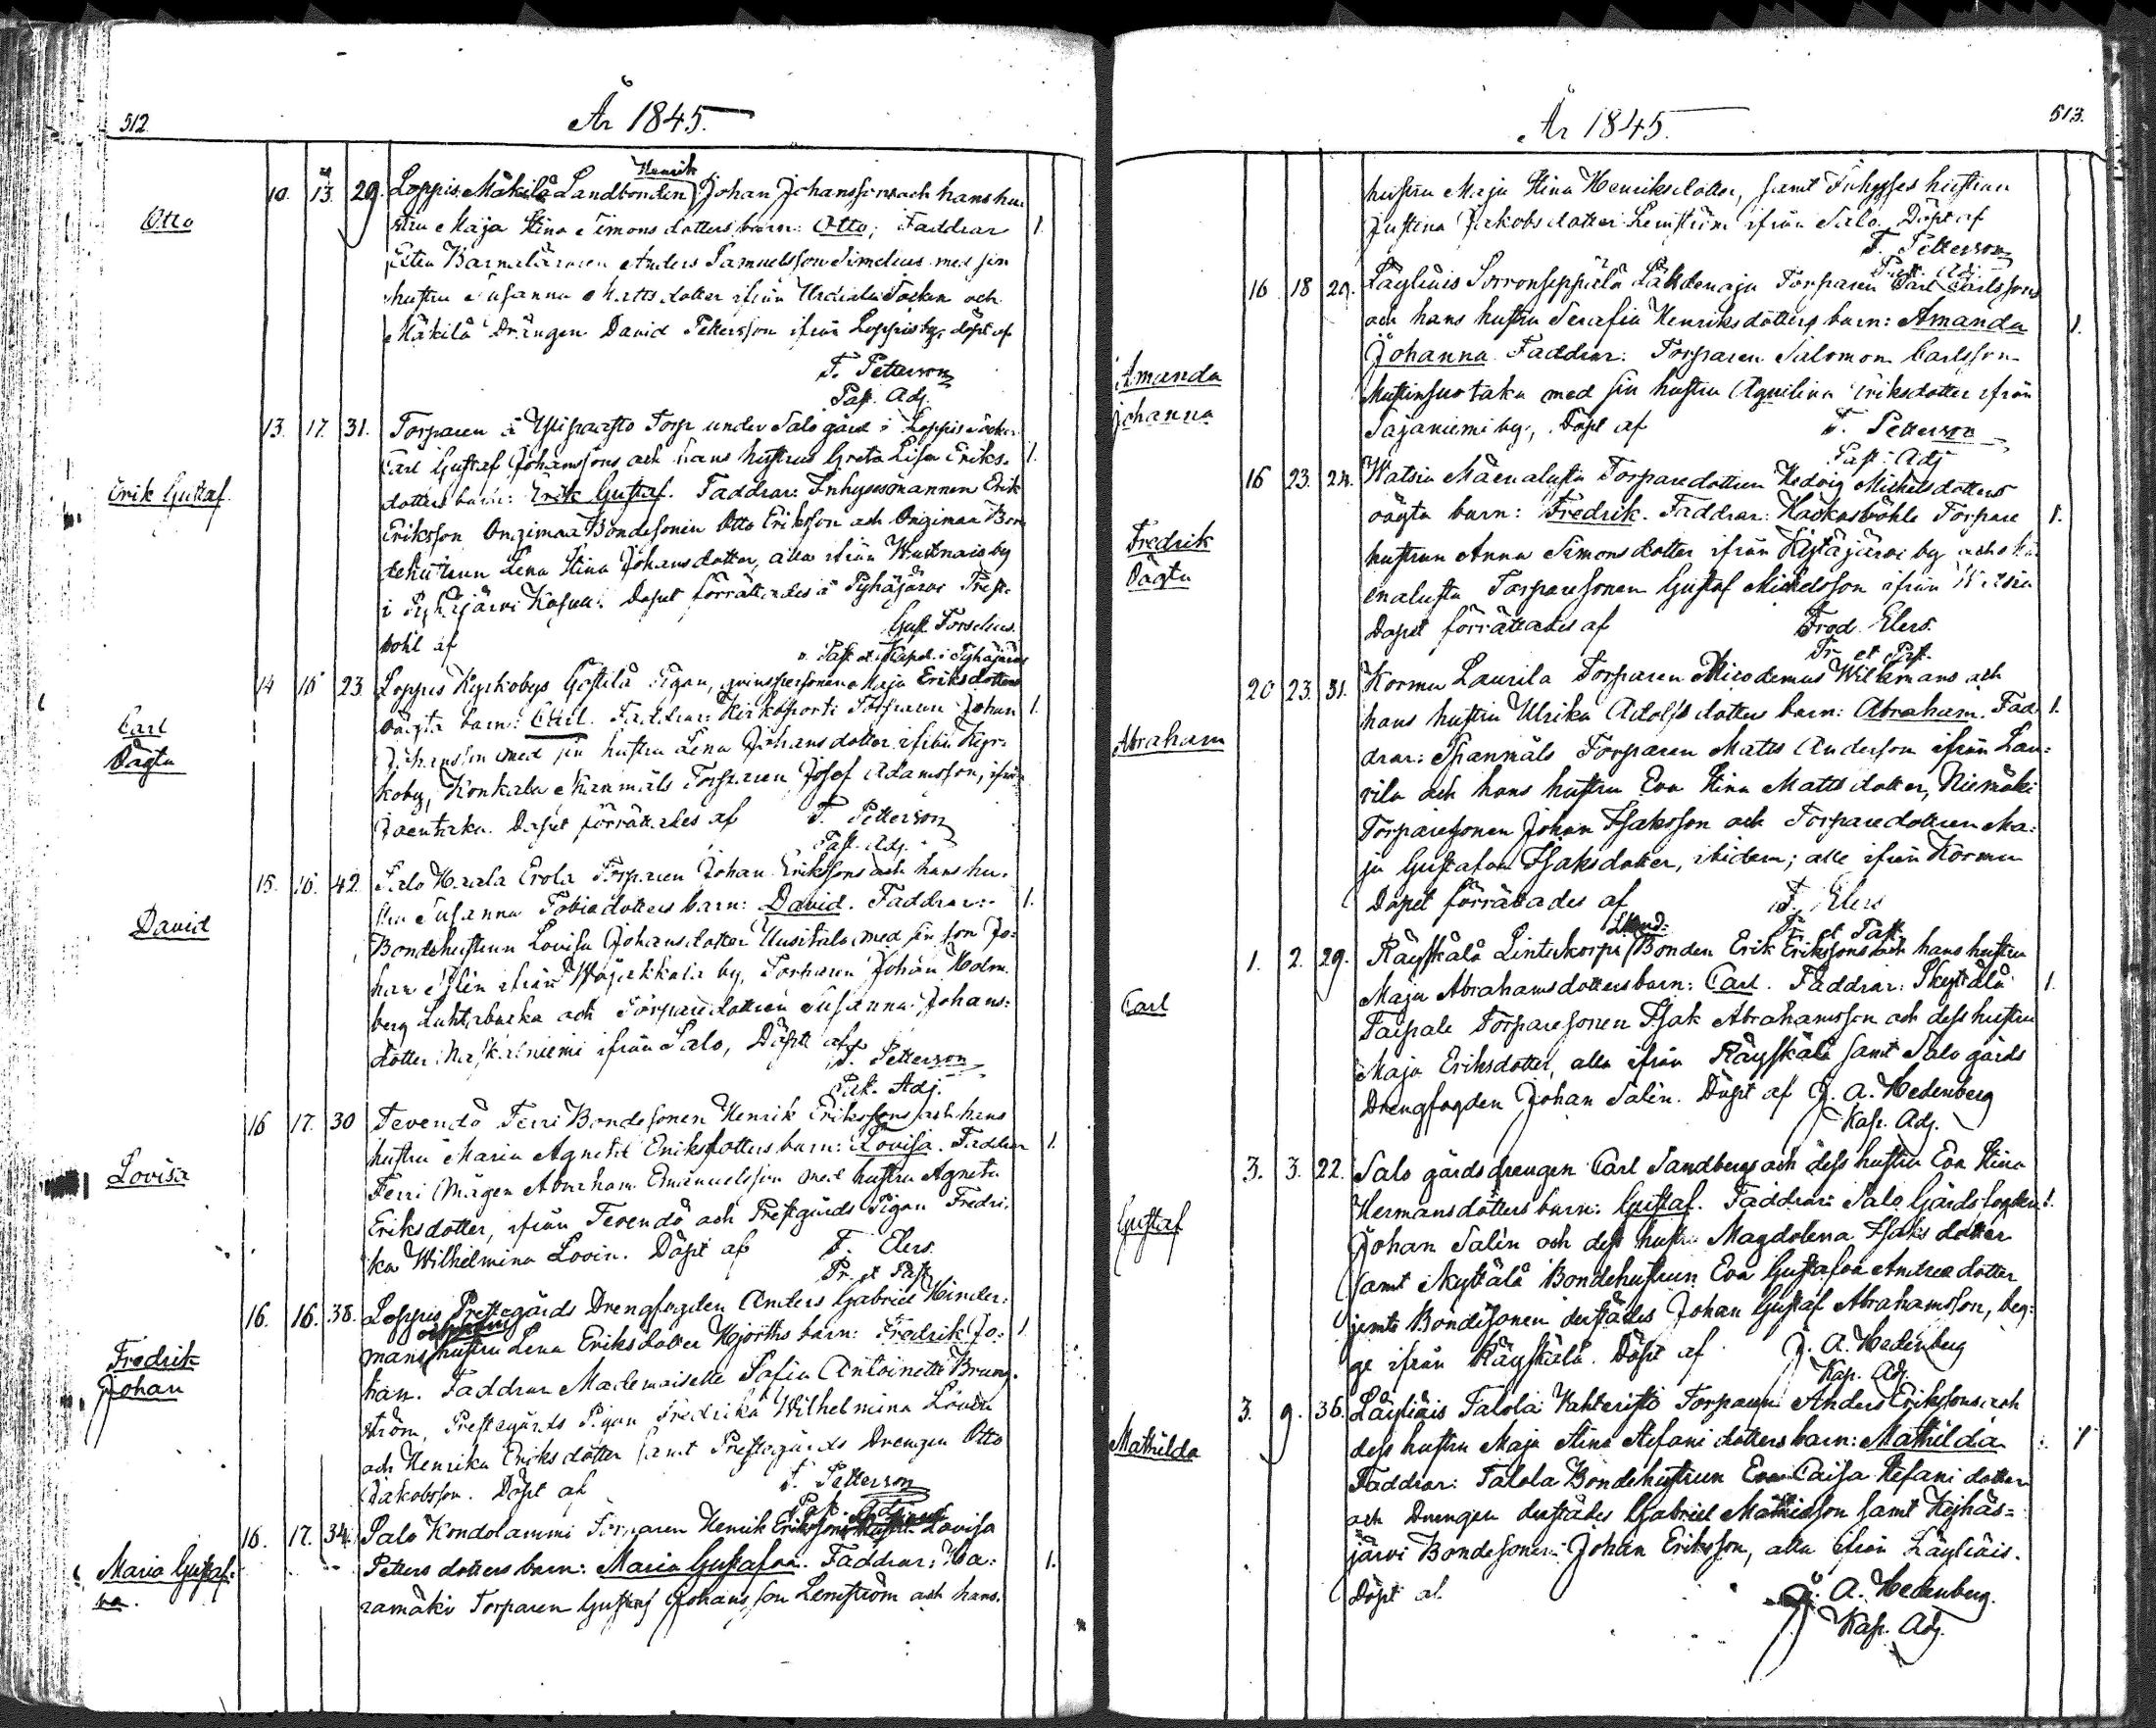 512.
År 1845.
Otto
10. 13. 29. Loppis Mäkilä Landbonden Henrik Johan Johanssons och hans hu-
stru Maja Stina Simons dotters barn: Otto; Faddrar 1.
Anders Samuelsson Simelius med sin
hustru Susanna Mattsdotter ifrån Urdiala Socken och
Mäkilä Drängen David Pettersson ifrån Loppis by, döpt af
F. Petterson
Past. Adj.
Erik Gustaf.
13. 17. 31. Torparen å Torp under Salo gård i Loppis Socken
Carl Gustaf Johanssons och hans hustrus Greta Lisa Eriks- 1.
dotters barn: Erik Gustaf. Faddrar: Inhysesmannen Erik
Eriksson Ongimaa Bondesonen Otto Eriksson och Ongimaa Bon
dehustrun Lena Stina Johansdotter, alla ifrån by
i Pyhäjärvi Kapell. Dopet förrättades å Pyhäjärvi Prest-
bohl af Gust. Forselius.
v. Past. et Kapel. i Pyhäjärvi
Carl
Oägta
14 15 23. Loppis Kyrkobys Göstilä Pigan, qvinspersonen Maja Eriksdotters
oägta barn: Carl. Faddrar: Kirkoportti Torparen Johan 1.
Johansson med sin hustru Lena Johansdotter ifrån Kyr-
koby, Konkala Torparen Josef Adamsson, ifrån
Dopet förrättades af F. Petterson
Past. Adj.
David
15. 16. 42. Salo Haala Erola Torparen Johan Erikssons och hans hu-
stru Susanna Tobiadotters barn: David. Faddrar: 1.
Bondehustrun Lovisa Johansdotter Uusitalo med sin son Jo-
han ifrån by, Torparen Johan Holm-
berg och Torparedottren Susanna Johans-
dotter ifrån Salo, Döpt af
F. Petterson
Past. Adj.
Lovisa
16 17. 30 Tevendö Ferri Bondesonen Henrik Erikssons och hans
hustru Maria Agneta Eriksdotters barn: Lovisa. Faddrar 1.
Ferri Mågen Abraham Emanuelsson med hustru Agneta
Eriksdotter, ifrån Tevendö och Prestgårds Pigan Fredri-
ka Wilhelmina Lovin. Döpt af F. Elers.
Pr. et Past.
Fredrik
Johan
16. 16. 38. Loppis Prestegårds Drengfogden Anders Gabriel Hinder-
mans och hans hustru Lena Eriksdotter Hjorths barn: Fredrik Jo- 1.
han. Faddrar Mademoiselle Sofia Antoinette
ström, Prestegårds Pigan Fredrika Wilhelmina Lovin
och Henrika Eriksdotter samt Prestegårds Drengen Otto
Jakobsson. Döpt af F. Petterson
Past. Adj.
Maria Gustaf-
va.
16. 17. 34. Salo Kondolammi Torparen Henrik Erikssons hustru Lovisa
Petters dotters barn: Maria Gustafva. Faddrar: Ha- 1.
ramäki Torparen Gustaf Johansson Lenström och hans
År 1845.
513.
hustru Maja Stina Henriksdotter, samt Inhyses hustrun
Justina Jakobsdotter Lenström ifrån Salo. Döpt af
F. Petterson
Past. Adj.
Amanda
Johanna
16 18 29. Läyliäis Sorronseppälä Torparen Carl Carlssons
och hans hustru Serafia Henriksdotters barn: Amanda 1.
Johanna. Faddrar: Torparen Salomon Carlsson
med sin hustru Aqvilina Eriksdotter ifrån
Sajaniemi by, Döpt af F. Petterson
Past. Adj
Fredrik
Oägta
16 23. 24. Watsia Mäenalusta Torparedottren Hedvig Michelsdotters
oägta barn: Fredrik. Faddrar: Torpare 1.
hustrun Anna Simonsdotter ifrån by och Mä
enalusta Torparesonen Gustaf Michelsson ifrån Watsia
Dopet förrättades af Fred. Elers.
Pr. et Past.
Abraham
20 23. 31. Kormu Laurila Torparen Nicodemus Wilkmans och
hans hustru Ulrika Adolfsdotters barn: Abraham. Fad- 1.
drar: Spannmåls Torparen Matts Andersson ifrån Lau-
rila och hans hustru Eva Stina Mattsdotter, Niemäki
Torparesonen Johan Isaksson och Torparedottren Ma-
ja Gustafva Isaksdotter, ibidem; alle ifrån Kormu
Dopet förrättades af F. Elers
Pr. et Past.
Carl
1. 2. 29. Räyskälä Linterkorpi Bonden Erik Erikssons och hans hustru
Maja Abrahamsdotters barn: Carl. Faddrar: 1.
Taipale Torparesonen Isak Abrahamsson och dess hustru
Maja Eriksdotter, alla ifrån Räyskälä samt Salo gårds
Drengfogden Johan Salén. Döpt af J. A. Hedenberg
Kap. Adj.
Gustaf
3. 3. 22. Salo gårdsdrengen Carl Sandbergs och dess hustru Eva Stina
Hermansdotters barn: Gustaf. Faddrar: Salo Gårds fogden 1.
Johan Salén och dess hustru Magdalena Isaks dotter
samt Bondehustrun Eva Gustafva Andreadotter
jemte Bondesonen derstädes Johan Gustaf Abrahamsson, beg-
ge ifrån Räyskälä. Döpt af J. A. Hedenberg
Kap. Adj.
Mathilda
3. 9. 36. Läyliäis Talola Wahteristo Torparen Anders Erikssons och
dess hustru Maja Stina Stefani dotters barn: Mathilda 1
Faddrar: Talola Bondehustrun Eva Caisa Stefani dotter
och Drengen derstädes Gabriel Mathiasson samt Keihäs-
järvi Bondesonen Johan Eriksson, alla ifrån Läyliäis.
Döpt af J. A. Hedenberg.
Kap. Adj.